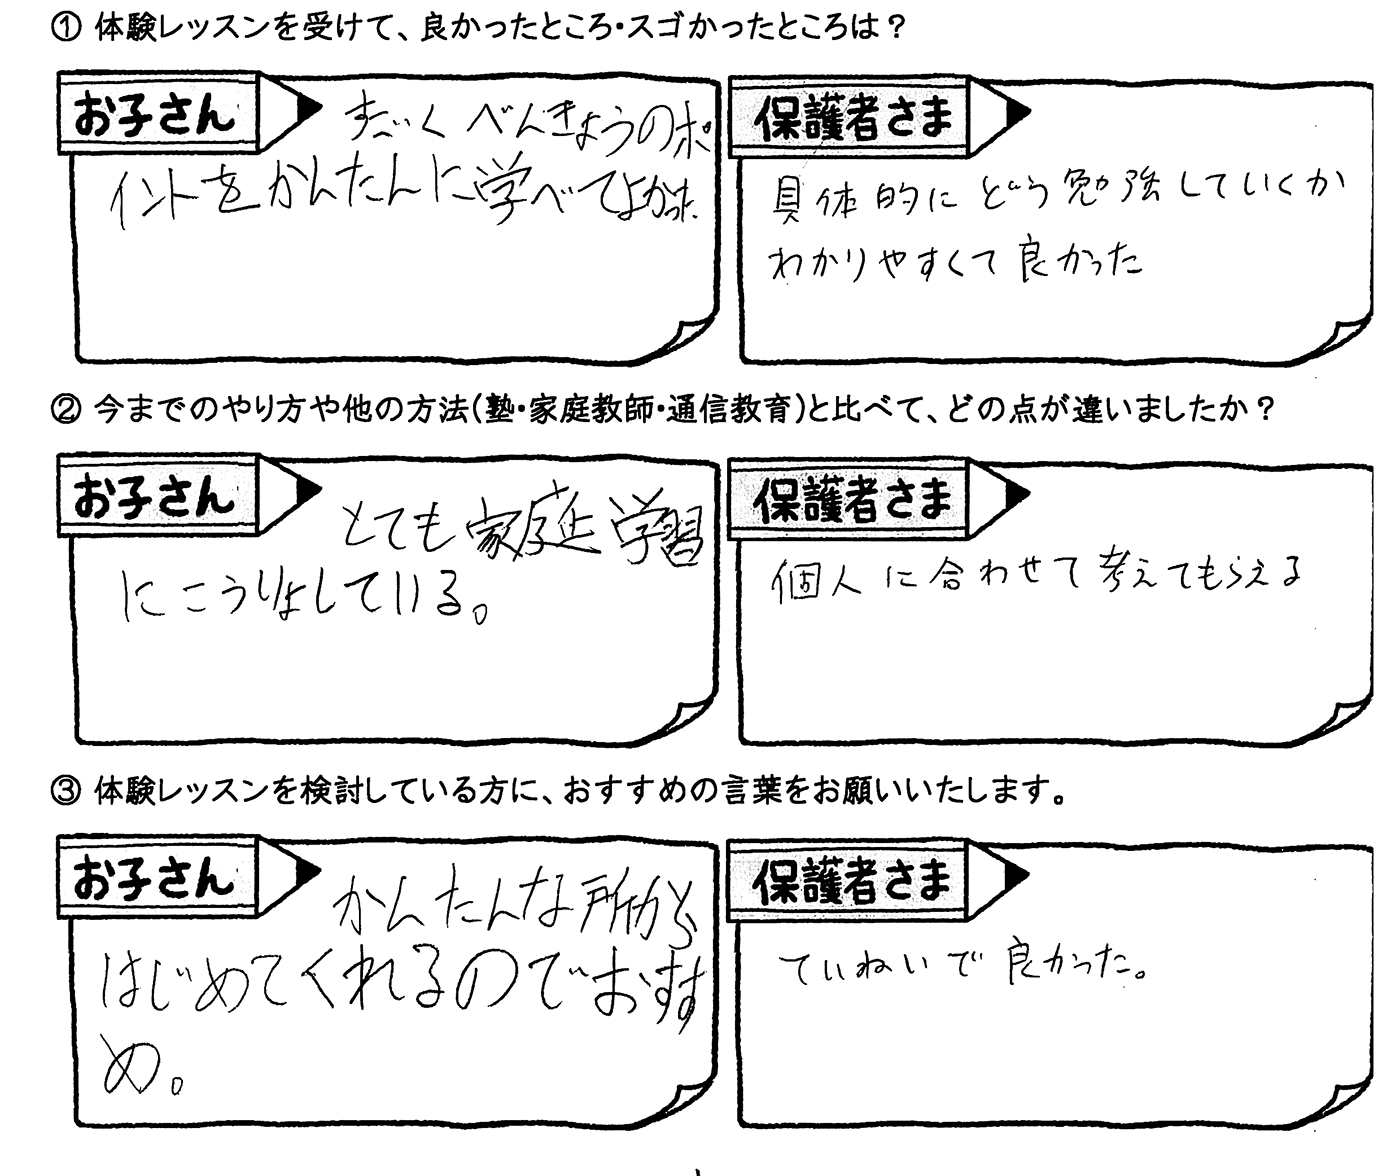 ① 体験レッスンを受けて、良かったところ・スゴかったところは？
お子さん
すごく べんきょうのポ
イントをかんたんに学べてよかった。
保護者さま
具体的に どう勉強していくか
わかりやすくて良かった
② 今までのやり方や他の方法(塾・家庭教師・通信教育)と比べて、どの点が違いましたか？
お子さん
とても家庭学習
にこうりょしている。
保護者さま
個人に合わせて考えてもらえる
③ 体験レッスンを検討している方に、おすすめの言葉をお願いいたします。
お子さん
かんたんな所から
はじめてくれるのでおすす
め。
保護者さま
ていねいで良かった。